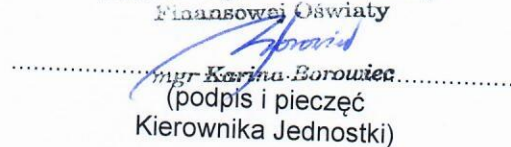 Finansowej Oświaty
mgr Karina Borowiec
(podpis i pieczęć
Kierownika Jednostki)